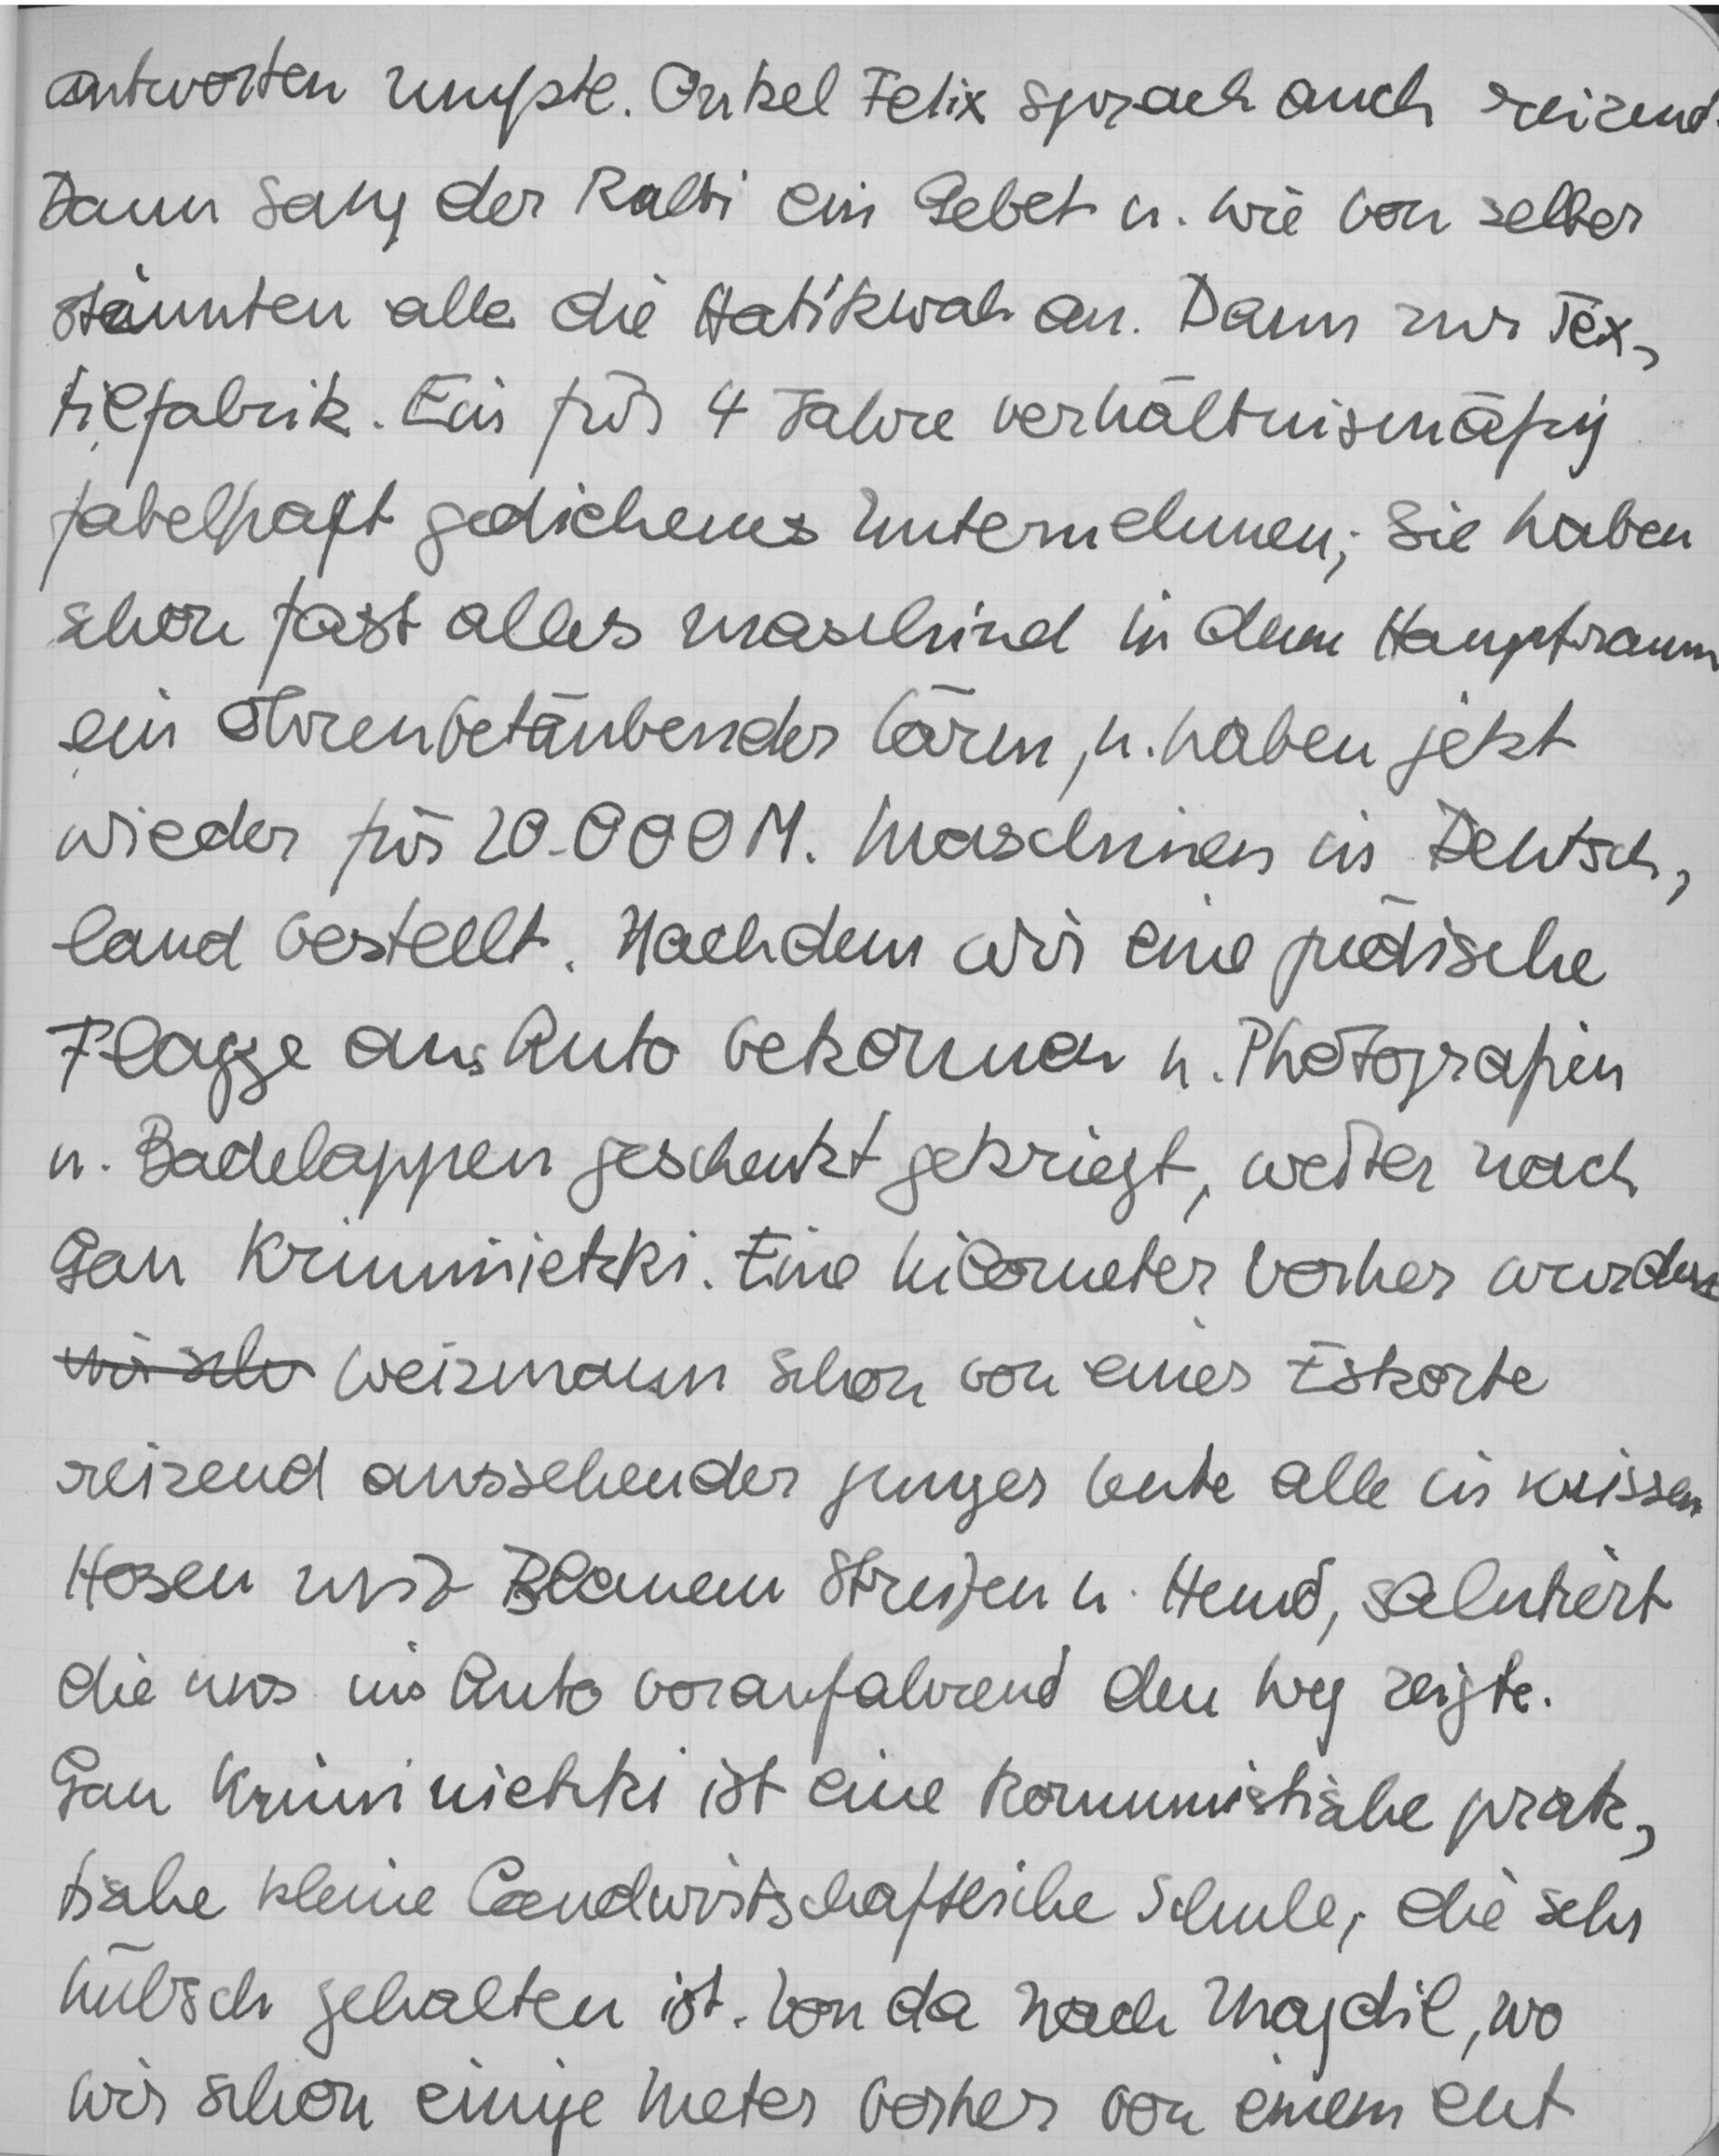 antworten mußte. Onkel Felix sprach auch reizend.
Dann sang der Rabbi ein Gebet u. wie von selber
stimmten alle die Hatikwah an. Dann zur Tex-
tilfabrik. Ein für 4 Jahre verhältnismäßig
fabelhaft gediehenes Unternehmen; Sie haben
schon fast alles maschinel in dem Hauptraum
ein Ohrenbetäubender Lärm, u. haben jetzt
wieder für 20.000 M. Maschinen in Deutsch-
land bestellt. Nachdem wir eine jüdische
Flagge ans Auto bekommen u. Photografien
u. Badelappen geschenkt gekriegt, weiter nach
Gan Krimminietzki. Eine kilometer vorher wurden
Weizmann schon von einer Eskorte
reizend aussehender junger Leute alle in weissen
Hosen mit Blauem Streifen u. Hemd, salutiert
die uns im Auto voranfahrend den Weg zeigte.
Gan Kriminietzki ist eine kommunistische prak-
tische kleine Landwirtschaftliche Schule, die sehr
hübsch gehalten ist. Von da nach Magdil, wo
wir schon einige Meter vorher von einem ent